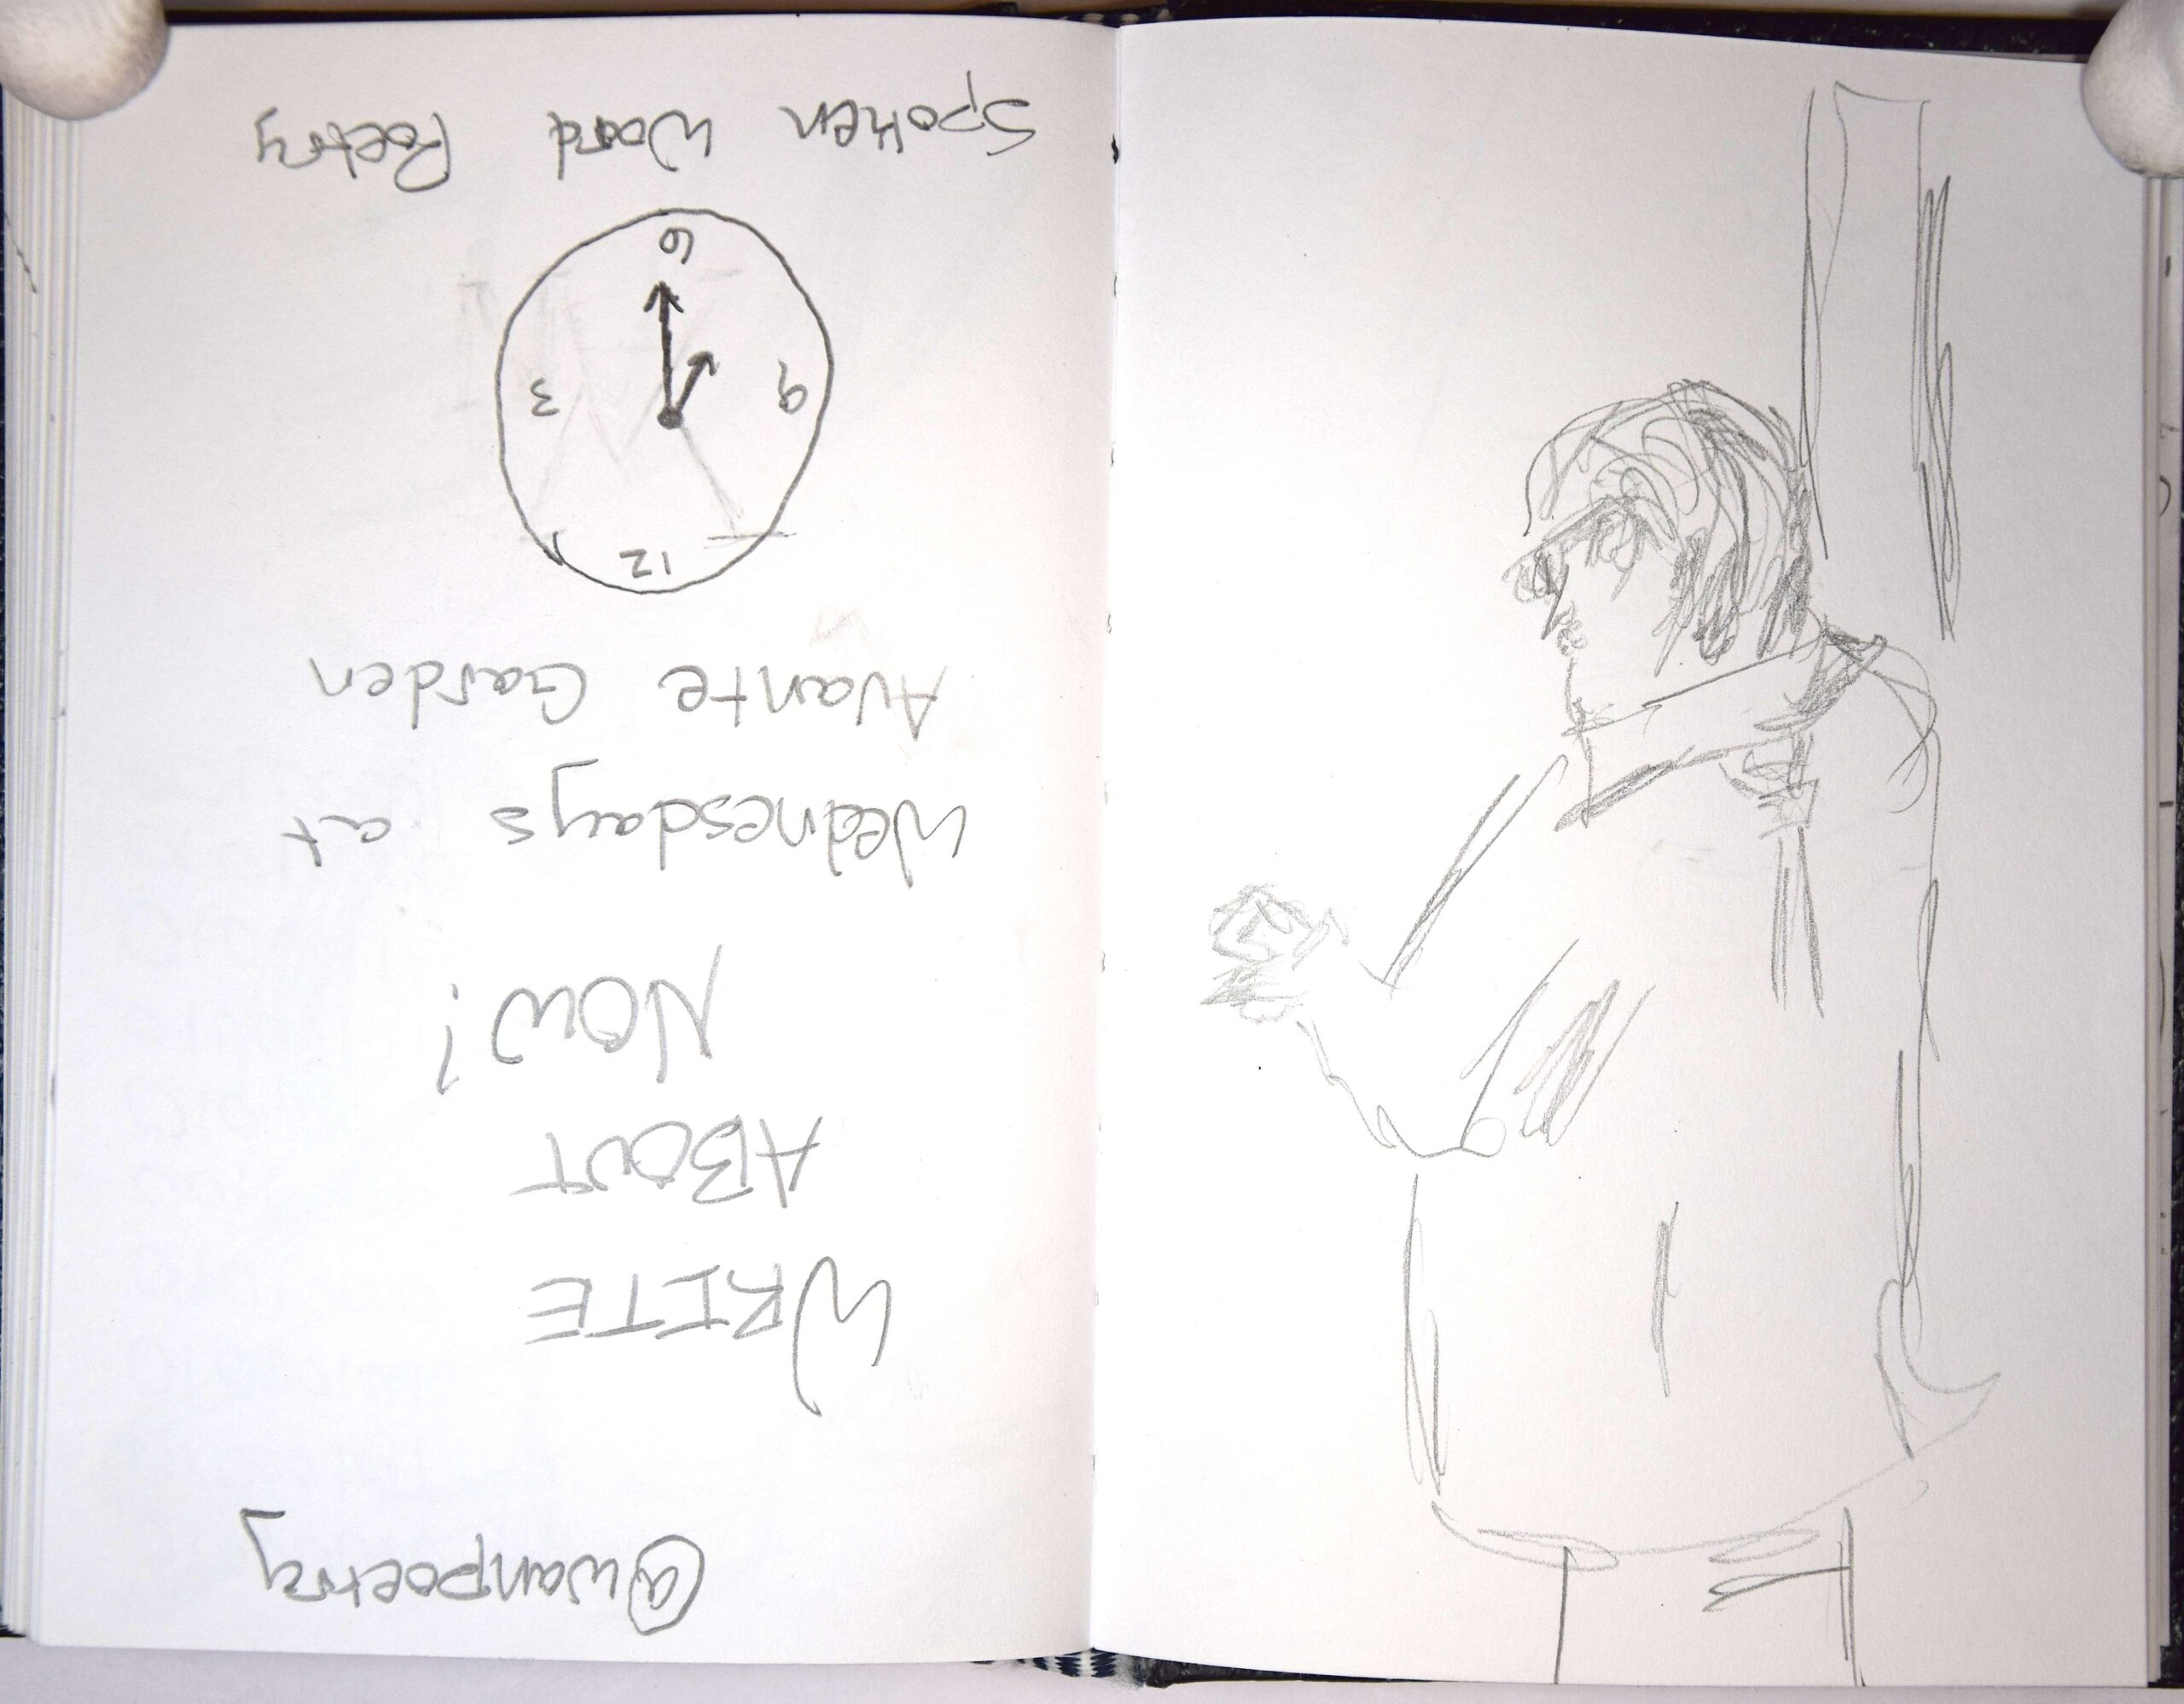 @wanpoetry
WRITE
ABOUT
NOW!
Wednesdays at
Avante Garden
12
9
3
6
Spoken Word Poetry